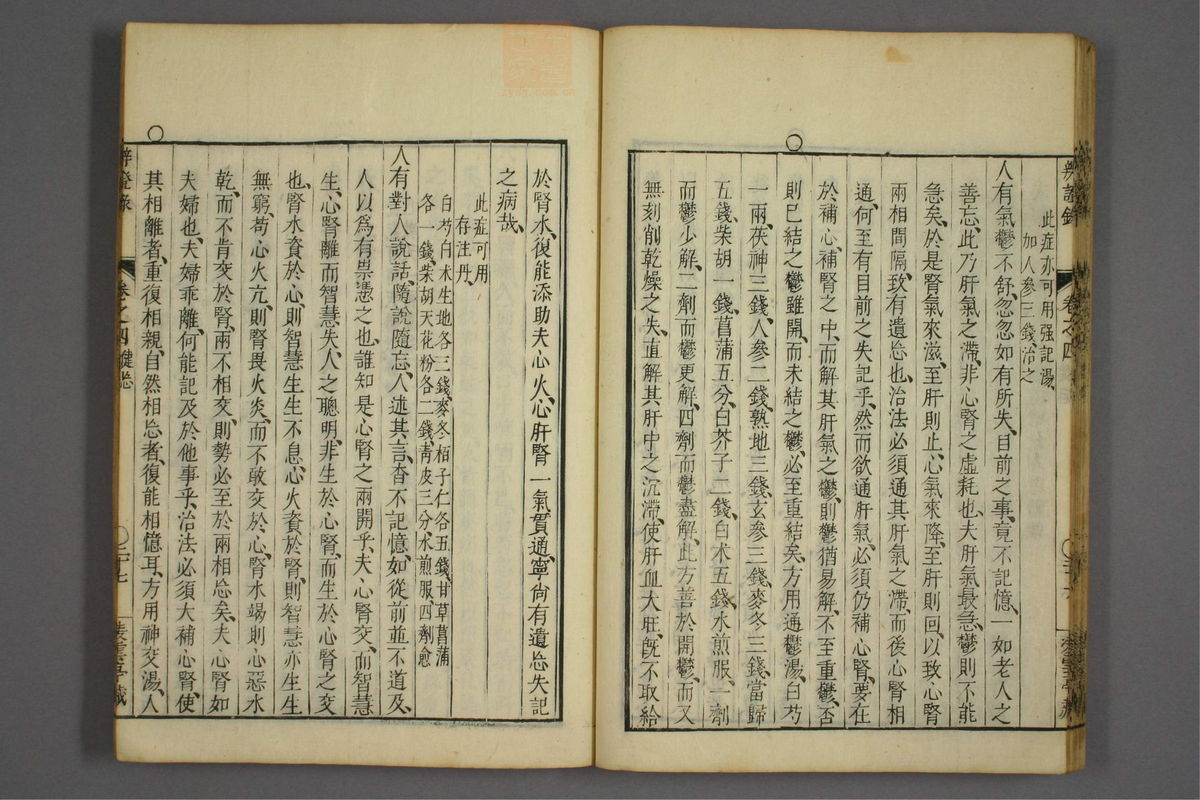 此症亦可用强記湯
加人參三錢治之
人有氣鬱不舒忽忽如有所失目前之事竟不記憶一如老人之
善忘此乃肝氣之滯非心腎之虛耗也夫肝氣最急鬱則不能
急矣於是腎氣來滋至肝則止心氣來降至肝則回以致心腎
兩相間隔致有遺忘也治法必須通其肝氣之滯而後心腎相
通何至有目前之失記乎然而欲通肝氣必須仍補心腎要在
於補心補腎之中而解其肝氣之鬱則鬱猶易解不至重鬱否
則巳結之鬱雖開而未結之鬱必至重結矣方用通鬱湯白芍
一兩茯神三錢人參二錢熟地三錢玄參三錢麥冬三錢當歸
五錢柴胡一錢菖蒲五分白芥子二錢白术五錢水煎服一劑
而鬱少解二劑而鬱更解四劑而鬱盡解此方善於開鬱而又
無刻削乾燥之失直解其肝中之沉滯使肝血大旺旣不取給
於腎水復能添助夫心火心肝腎一氣貫通寧尚有遺忘失記
之病哉
此症可用
存注丹
白芍白术生地各三錢麥冬栢子仁各五錢甘草菖蒲
各一錢柴胡天花粉各二錢青皮三分水煎服四劑愈
人有對人說話隨說隨忘人述其言杳不記憶如從前並不道及
人以爲有祟憑之也誰知是心腎之兩開乎夫心腎交而智慧
生心腎離而智慧失人之聰明非生於心腎而生於心腎之交
也腎水資於心則智慧生生不息心火資於腎則智慧亦生生
無窮苟心火亢則腎畏火炎而不敢交於心腎水竭則心惡水
乾而不肯交於腎兩不相交則勢必至於兩相忘矣夫心腎如
夫婦也夫婦乖離何能記及於他事乎治法必須大補心腎使
其相離者重復相親自然相忘者復能相憶耳方用神交湯人
辨證錄
卷之四健忘
二十七